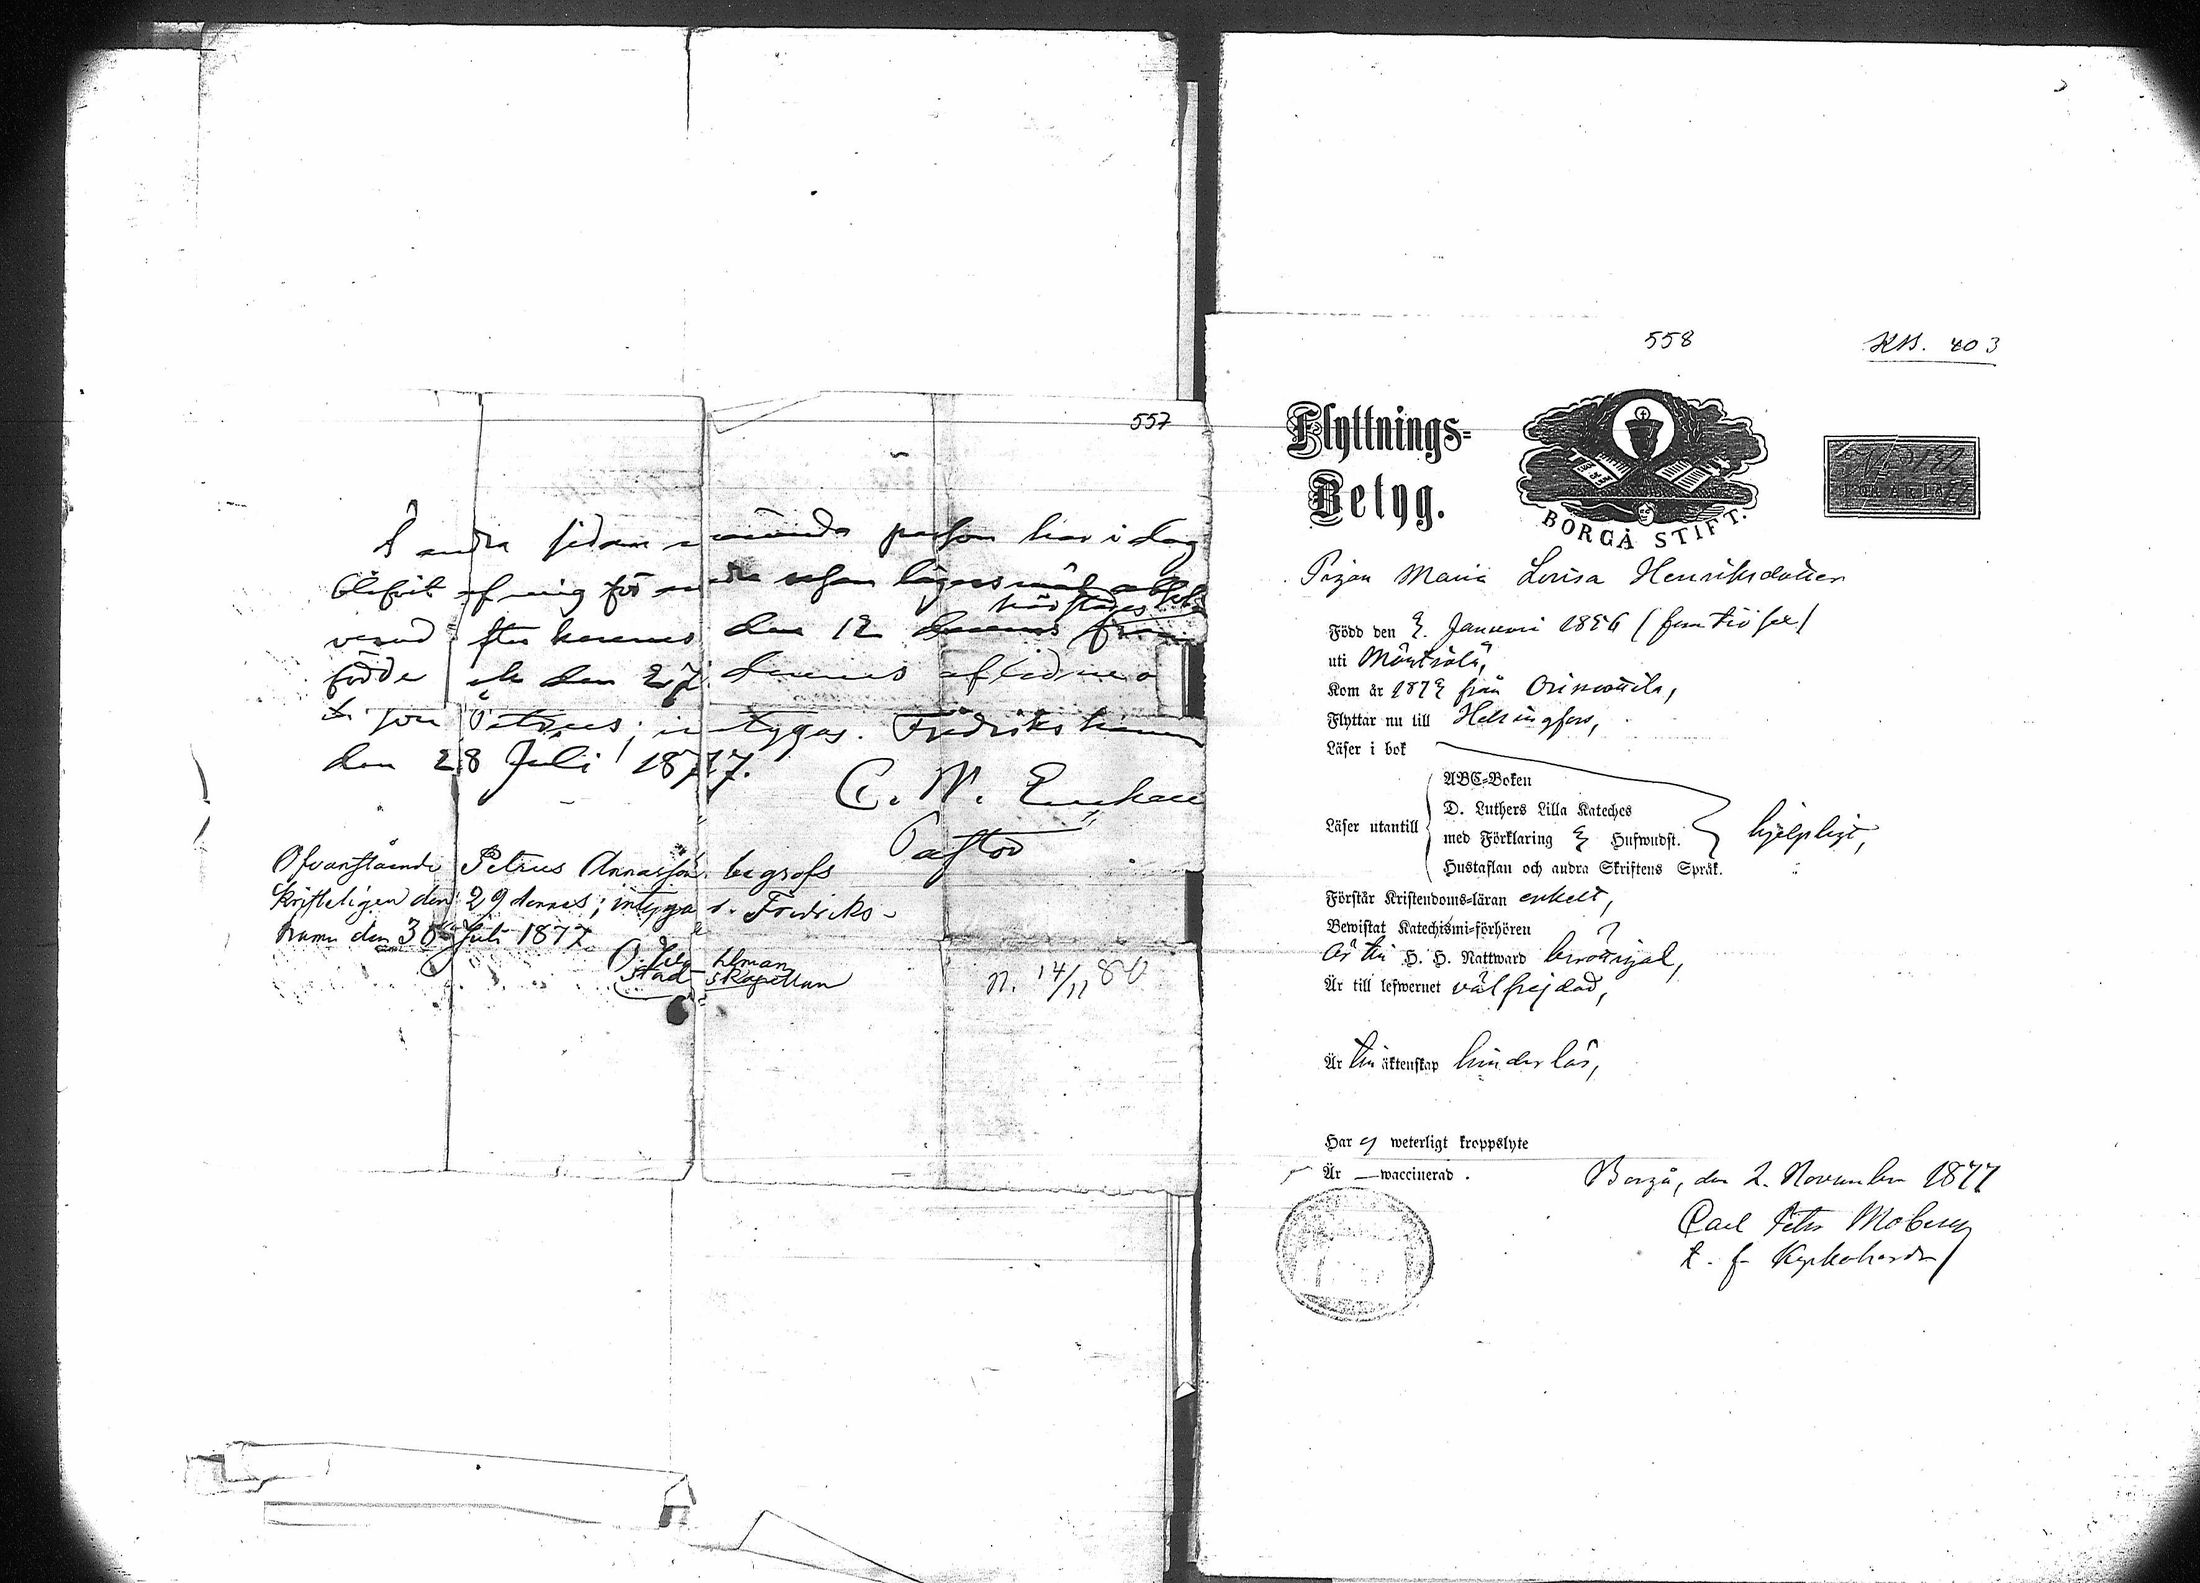 557
Å andra sidan nämnda person har i dag
blifvit af mig för andra resan lägersmål absol-
verad efter hennes den 12 hörstädes
födde och den 27 dennes aflidne o
ä. son Petrus; intygas. Fredrikshamn
den 28 Juli 1877.
C. W.
Pastor
Ofvanstående Petrus Annasson begrofs
kristeligen den 29 dennes; intygas. Fredriks-
hamn den 30 Juli 1877
stadskapellan
N. 14/11 80
558
KB. 403
Flyttnings-
Betyg.
BORGÅ STIFT.
Pigan Maria Lovisa Henriksdotter
Född den 2. Januari 1856 (femtiosex)
uti Mäntsälä,
Kom år 1872 från Orimattila,
Flyttar nu till Helsingfors,
Läser i bok
Läser utantill
ABC-Boken
D. Luthers Lilla Kateches
med Förklaring & Hufwudst.
Hustaflan och andra Skriftens Språk.
hjelpligt,
Förstår Kristendoms-läran enkelt,
Bewistat Katechismi-förhören ?
Är till H. H. Nattward berättigad,
Är till lefwernet välfrejdad,
Är till äktenskap hinderlös,
Har ej weterligt kroppslyte
Är — waccinerad.
Borgå, den 2. November 1877
Carl Petr Moberg
t. f. Kyrkoherde